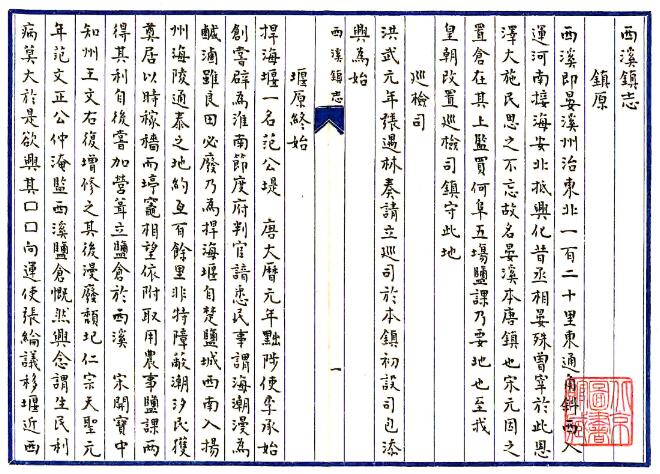 西溪鎮志
鎮原
西溪即晏溪州治東北一百二十里東通角斜西入
運河南接海安北抵興化昔丞相晏殊曾宰於此恩
澤大施民思之不忘故名晏溪本唐鎮也宋元因之
置倉在其上監買何阜五場鹽課乃要地也至我
皇朝改置巡檢司鎮守此地
巡檢司
洪武元年張遇林奏請立巡司於本鎮初設司也添
興為始
西溪鎮志
一
堰原終始
捍海堰一名范公堤 唐大曆元年黜陟使李承始
創嘗辟為淮南節度府判官諳悉民事謂海潮漫為
鹹滷雖良田必廢乃為捍海堰自楚鹽城西南入揚
州海陵通泰之地約亙有餘里非特障蔽潮汐民獲
奠居以時稼穡而埻竈相望依附取用農事鹽課兩
得其利自後嘗加營葺立鹽倉於西溪 宋開寶中
知州王文右復增修之其後漫廢頹圮仁宗天聖元
年范文正公仲淹監西溪鹽倉慨然興念謂生民利
病莫大於是欲興其口口向運使張綸議移堰近西